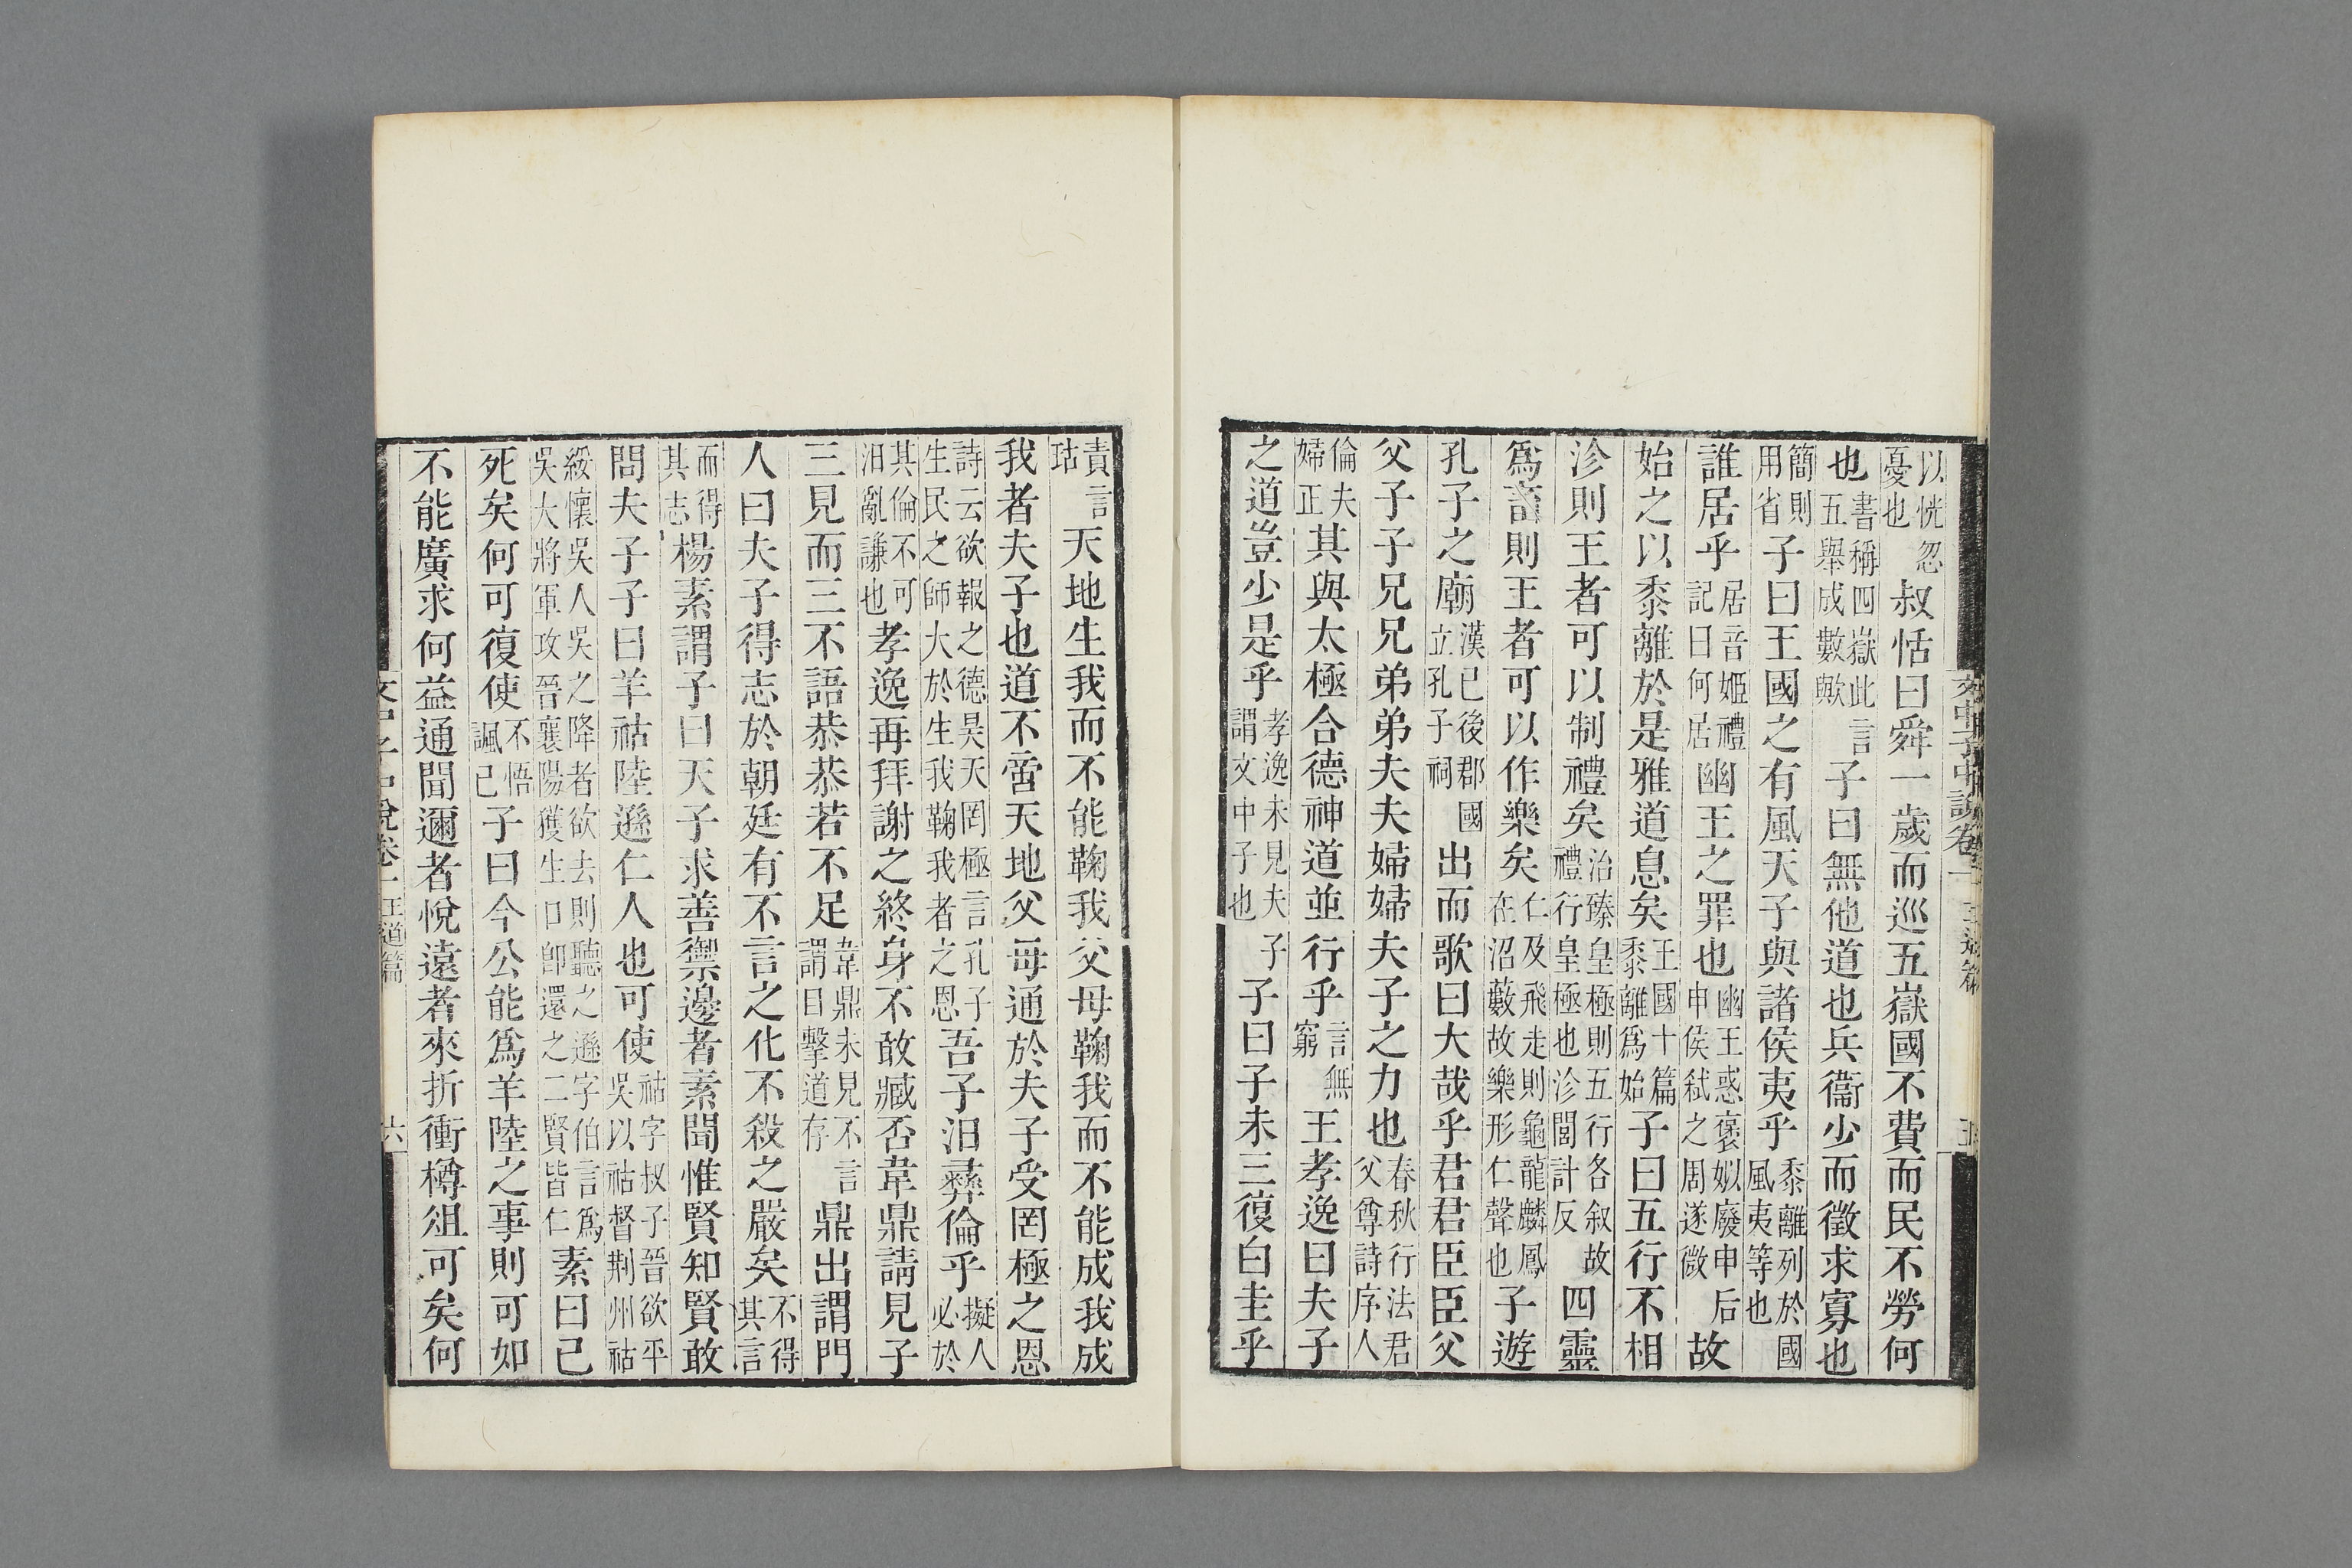 以恍忽憂也叔恬曰舜一歲而巡五嶽國不費而民不勞何
也書稱四嶽此言五舉成數歟子曰無他道也兵衞少而徵求寡也
簡則用省子曰王國之有風天子與諸侯夷乎黍離列於國風夷等也
誰居乎居音姬禮記曰何居幽王之罪也幽王惑褒姒廢申后申侯弑之周遂微故
始之以黍離於是雅道息矣王國十篇黍離爲始子曰五行不相
沴則王者可以制禮矣治臻皇極則五行各叙故禮行皇極也沴閭計反四靈
爲畜則王者可以作樂矣仁及飛走則龜龍麟鳳在沼藪故樂形仁聲也子遊
孔子之廟漢已後郡國立孔子祠出而歌曰大哉乎君君臣臣父
父子子兄兄弟弟夫夫婦婦夫子之力也春秋行法君父尊詩序人
倫夫婦正其與太極合德神道並行乎言無窮王孝逸曰夫子
之道豈少是乎孝逸未見夫子謂文中子也子曰子未三復白圭乎
文中子中說卷一 王道篇 五
責言玷天地生我而不能鞠我父母鞠我而不能成我成
我者夫子也道不啻天地父母通於夫子受罔極之恩
詩云欲報之德昊天罔極言孔子生民之師大於生我鞠我者之恩吾子汨彝倫乎擬人必於
其倫不可汨亂謙也孝逸再拜謝之終身不敢臧否韋鼎請見子
三見而三不語恭恭若不足韋鼎未見不言謂目擊道存鼎出謂門
人曰夫子得志於朝廷有不言之化不殺之嚴矣不得其言
而得其志楊素謂子曰天子求善禦邊者素聞惟賢知賢敢
問夫子子曰羊祜陸遜仁人也可使祜字叔子晉欲平吳以祜督荆州祜
綏懷吳人吳之降者欲去則聽之遜字伯言爲吳大將軍攻晉襄陽獲生口卽還之二賢皆仁素曰已
死矣何可復使不悟諷已子曰今公能爲羊陸之事則可如
不能廣求何益通聞邇者悅遠者來折衝樽俎可矣何
文中子中說卷一 王道篇 六